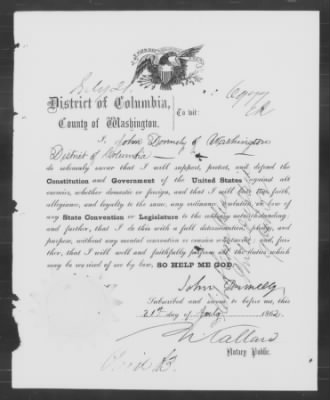 July 21.
Copy
District of Columbia,
County of Washington.
To wit:
I, John Donnely of Washington
District of Columbia
do solemnly swear that I will support, protect, and defend the
Constitution and Government of the United States against all
enemies, whether domestic or foreign, and that I will bear true faith,
allegiance, and loyalty to the same, any ordinance, resolution, or law of
any State Convention or Legislature to the contrary notwithstanding;
and further, that I do this with a full determination, pledge, and
purpose, without any mental reservation or evasion whatsoever; and, fur-
ther, that I will well and faithfully perform all the duties which
may be required of me by law, SO HELP ME GOD.
John Donnely
Subscribed and sworn to before me, this
21st day of July 1862.
N Callan
Notary Public.